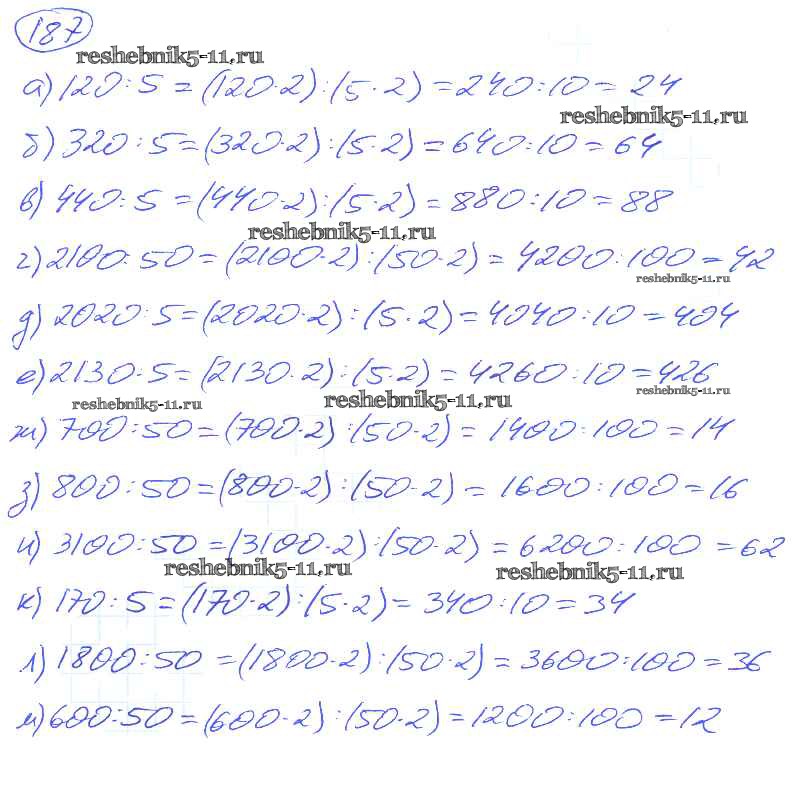 187
reshebnik5-11.ru
а) 120 : 5 = (120·2) : (5·2) = 240 : 10 = 24
reshebnik5-11.ru
б) 320 : 5 = (320·2) : (5·2) = 640 : 10 = 64
в) 440 : 5 = (440·2) : (5·2) = 880 : 10 = 88
reshebnik5-11.ru
г) 2100 : 50 = (2100·2) : (50·2) = 4200 : 100 = 42
reshebnik5-11.ru
д) 2020 : 5 = (2020·2) : (5·2) = 4040 : 10 = 404
е) 2130 : 5 = (2130·2) : (5·2) = 4260 : 10 = 426
reshebnik5-11.ru
reshebnik5-11.ru
reshebnik5-11.ru
ж) 700 : 50 = (700·2) : (50·2) = 1400 : 100 = 14
з) 800 : 50 = (800·2) : (50·2) = 1600 : 100 = 16
и) 3100 : 50 = (3100·2) : (50·2) = 6200 : 100 = 62
reshebnik5-11.ru
reshebnik5-11.ru
к) 170 : 5 = (170·2) : (5·2) = 340 : 10 = 34
л) 1800 : 50 = (1800·2) : (50·2) = 3600 : 100 = 36
м) 600 : 50 = (600·2) : (50·2) = 1200 : 100 = 12